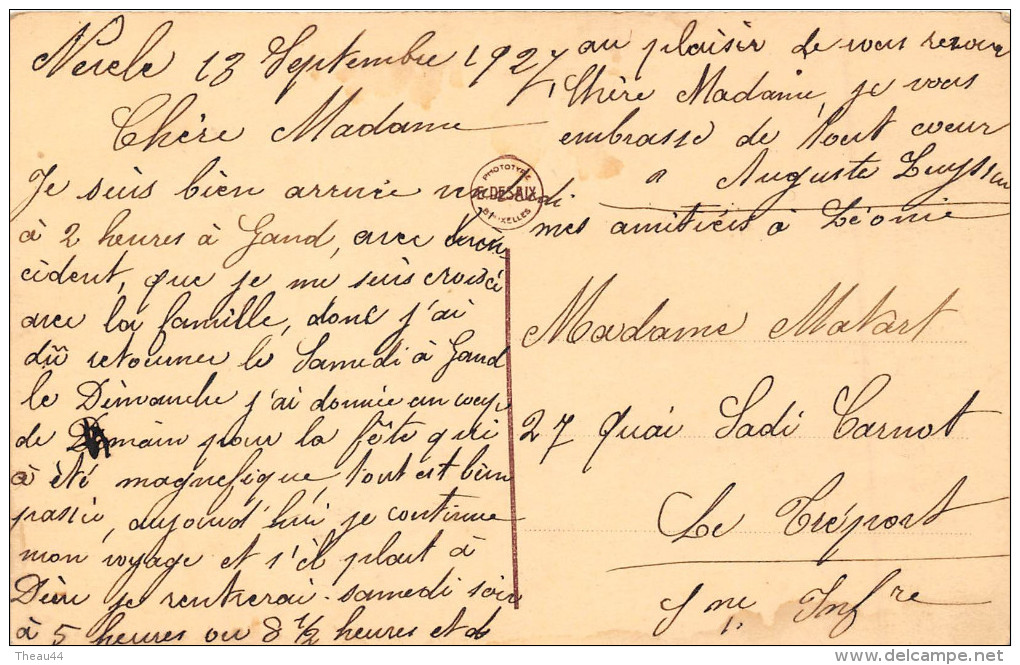 Nevele 13 Septembre 1927
Chère Madame
Je suis bien arrivée
à 2 heures à Gand, avec
cident, que je me suis croisée
avec la famille, donc j'ai
dû retourner le Samedi à Gand
le Dimanche j'ai donnée un coup
de main pour la fête qui
à été magnefique, tout est bien
passée, aujourd'hui je continue
mon voyage et s'il plait à
Dieu je rentrerai samedi soir
à 5 heures ou 8 1/2 heures et de
au plaisir de vous revoir
Chère Madame, je vous
embrasse de tout coeur
Auguste
mes amitiées à Léonie
PHOTOTYPIE
E. DESAIX
BRUXELLES
Madame Matart
27 Quai Sadi Carnot
Le Tréport
Sne Infre
Theau44
www.delcampe.net